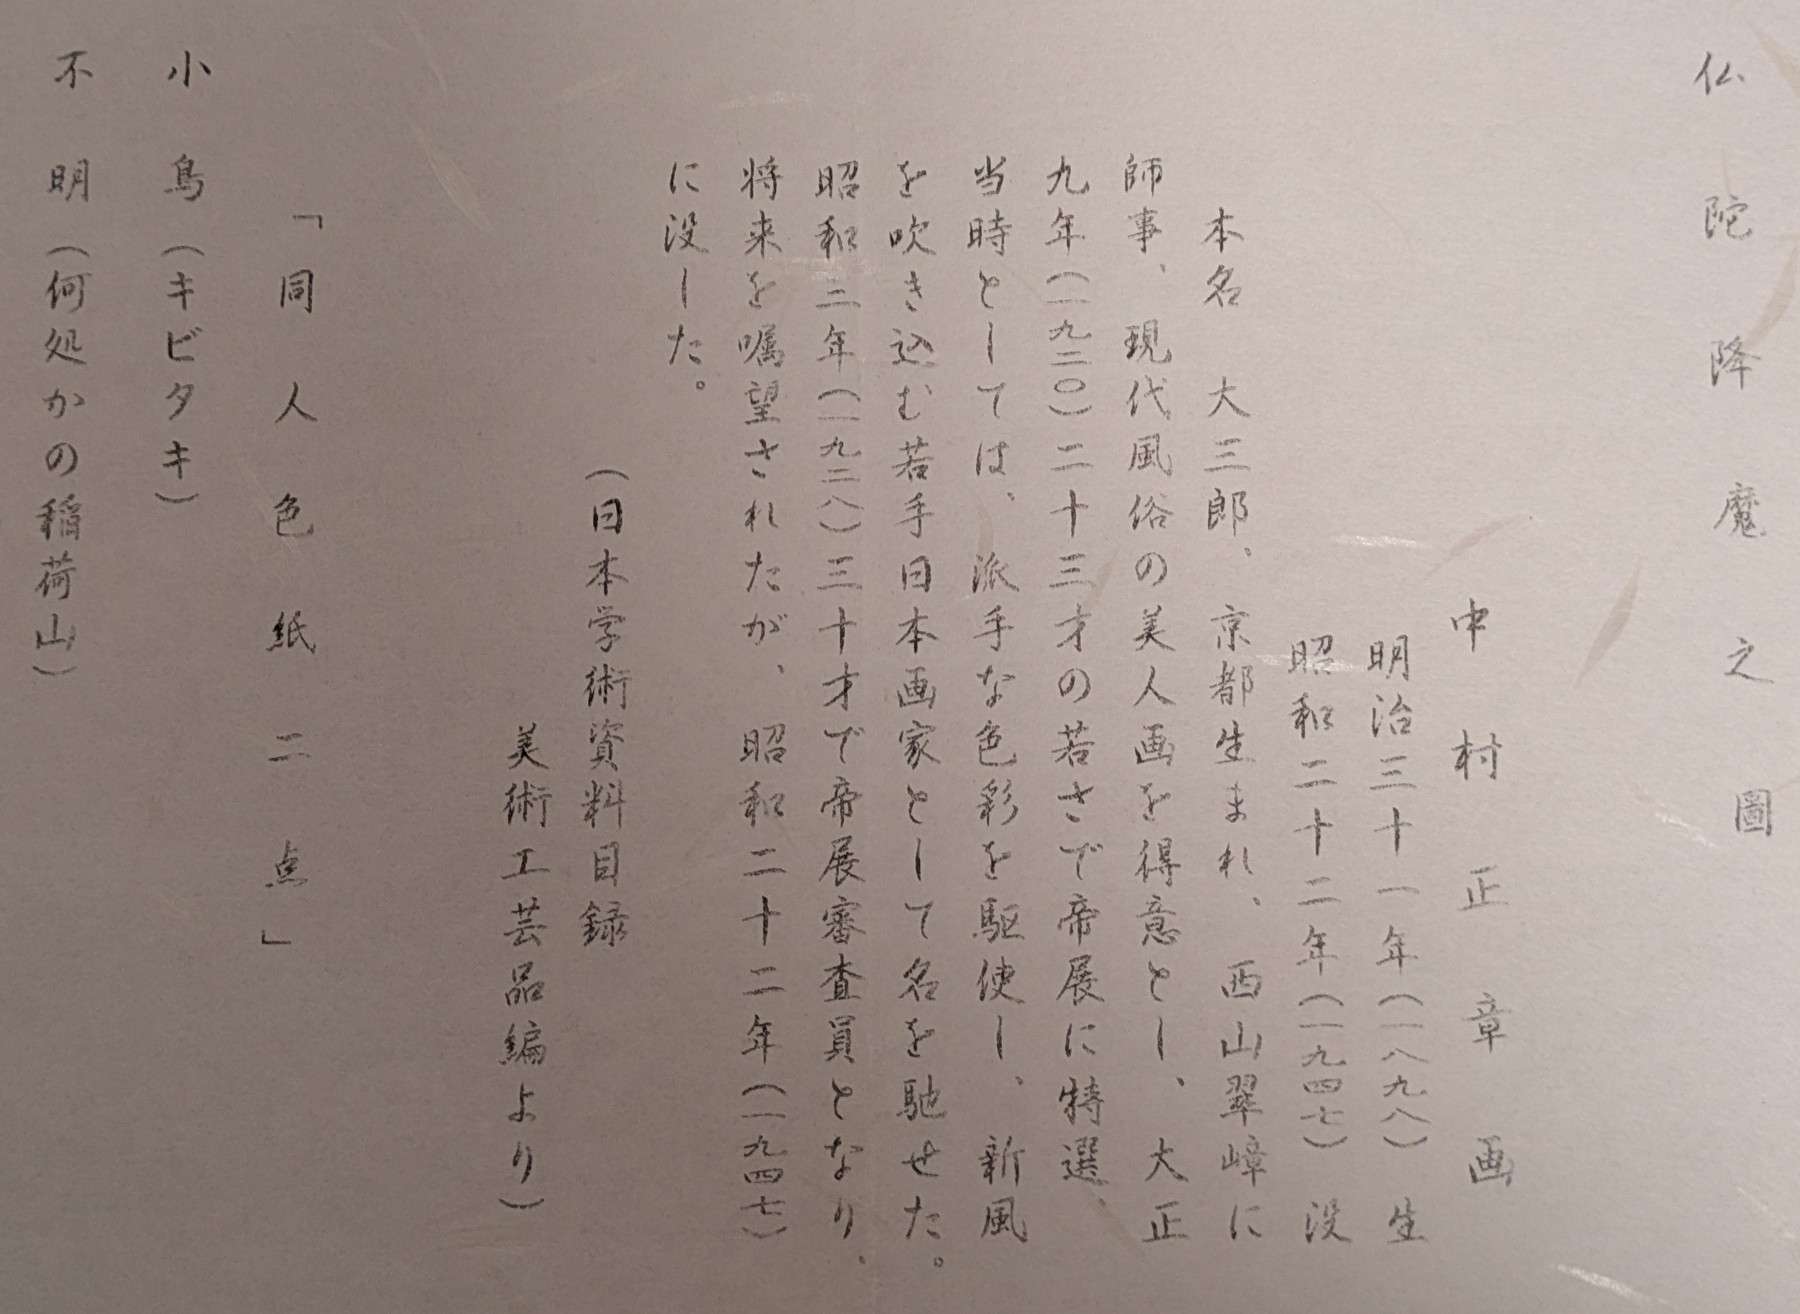 仏陀降魔之圖
中村正章画
明治三十一年(一八九八)生
昭和二十二年(一九四七)没
本名 大三郎、京都生まれ、西山翠嶂に
師事、現代風俗の美人画を得意とし、大正
九年(一九二〇)二十三才の若さで帝展に特選、
当時としては、派手な色彩を駆使し、新風
を吹き込む若手日本画家として名を馳せた。
昭和三年(一九二八)三十才で帝展審査員となり、
将来を嘱望されたが、昭和二十二年(一九四七)
に没した。
(日本学術資料目録
美術工芸品編より)
「同人色紙二点」
小鳥(キビタキ)
不明(何処かの稲荷山)